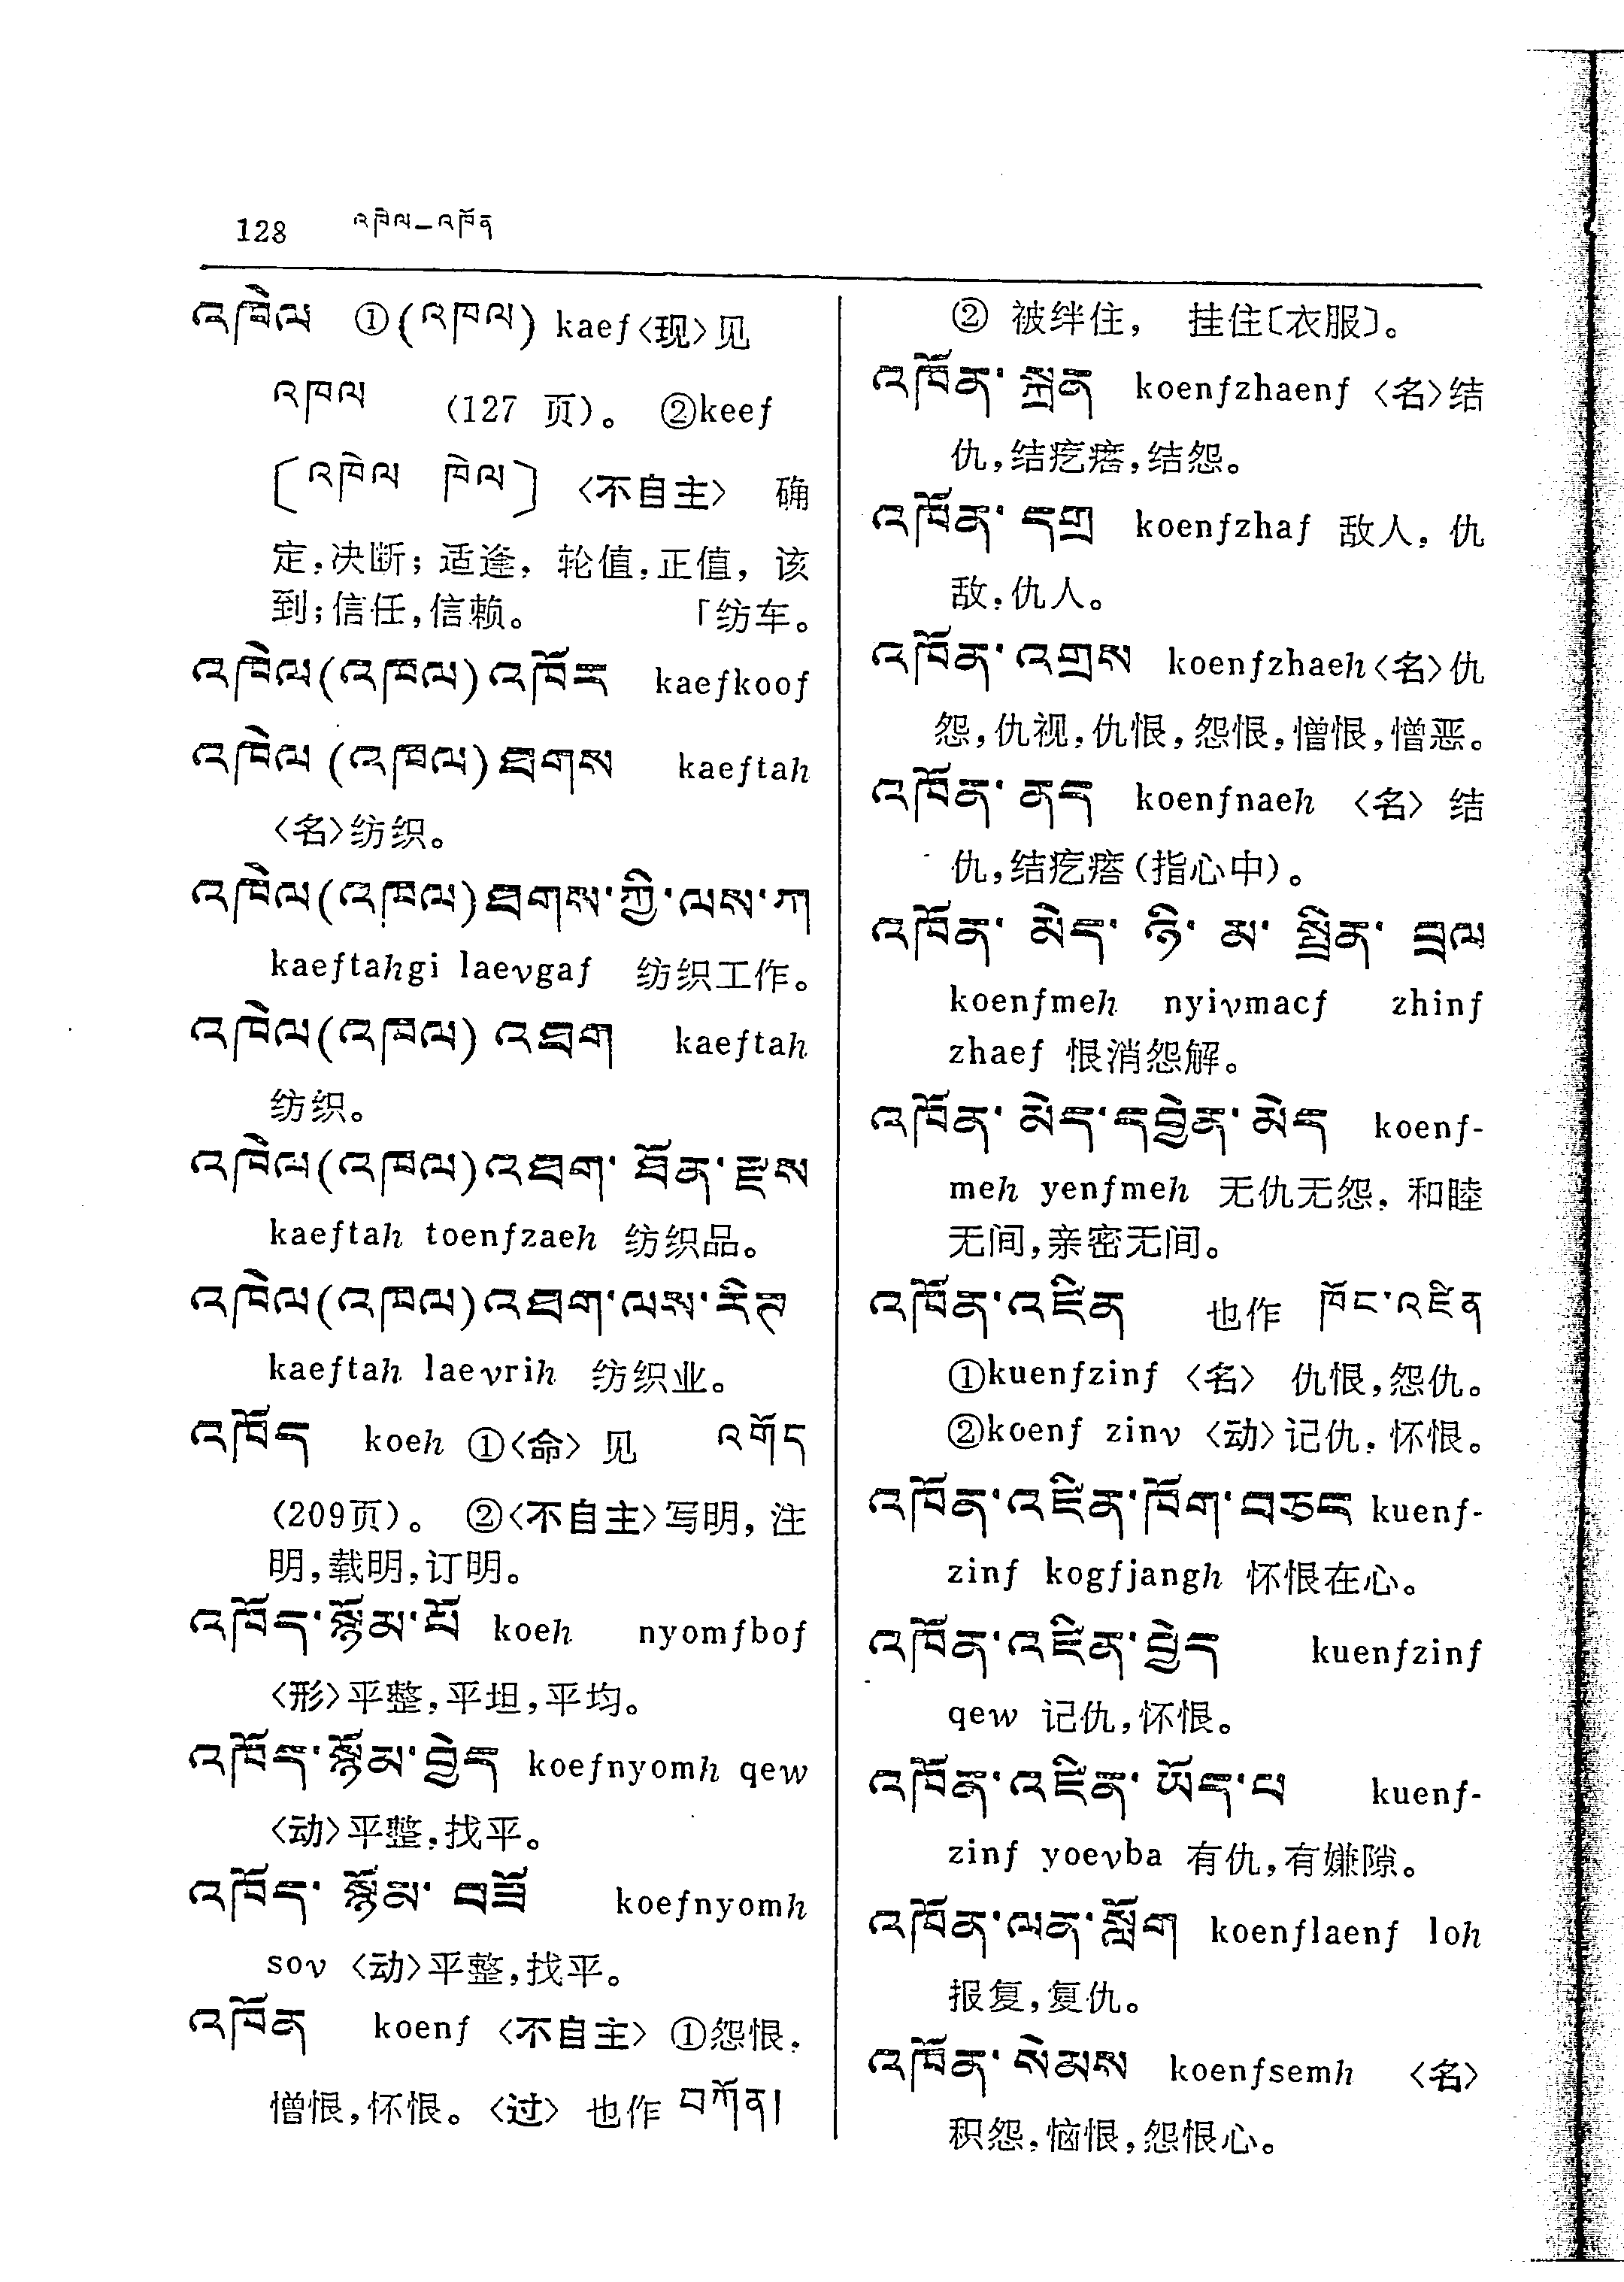 128 འཁེལ—འཁོན
འཁེལ ①(འཁལ) kaeƒ〈现〉见
འཁལ (127 页)。 ②keeƒ
〔འཁེལ ཁེལ〕〈不自主〉 确
定,决断; 适逢, 轮值,正值, 该
到;信任,信赖。 「纺车。
འཁེལ(འཁལ)འཁོར kaeƒkooƒ
འཁེལ (འཁལ)ཐགས kaeƒtah
〈名〉纺织。
འཁེལ(འཁལ)ཐགས་ཀྱི་ལས་ཀ
kaeƒtahgi laevgaƒ 纺织工作。
འཁེལ(འཁལ) འཐག kaeƒtah
纺织。
འཁེལ(འཁལ)འཐག་ ཐོན་རྫས
kaeƒtah toenƒzaeh 纺织品。
འཁེལ(འཁལ)འཐག་ལས་རིཊ
kaeƒtah laevrih 纺织业。
འཁོད koeh ①〈命〉 见 འགོད
(209页)。 ②〈不自主〉写明, 注
明,载明,订明。
འཁོད་སྙོམ་པོ koeh nyomƒboƒ
〈形〉平整,平坦,平均。
འཁོད་སྙོམ་བྱེད koeƒnyomh qew
〈动〉平整,找平。
འཁོད་ སྙོམ་ བཟོ koeƒnyomh
sov 〈动〉平整,找平。
འཁོན koenƒ 〈不自主〉 ①怨恨,
憎恨,怀恨。〈过〉 也作 བཀོན།
② 被绊住, 挂住〔衣服〕。
འཁོན་ སྐྲན koenƒzhaenƒ 〈名〉结
仇,结疙瘩,结怨。
འཁོན་ དགྲ koenƒzhaƒ 敌人, 仇
敌,仇人。
འཁོན་ འགྲས koenƒzhaeh〈名〉仇
怨,仇视,仇恨, 怨恨,憎恨,憎恶。
འཁོན་ ནད koenƒnaeh 〈名〉 结
仇,结疙瘩(指心中)。
འཁོན་ མེད་ ཉི་ མ་ སྤྲིན་ བྲལ
koenƒmeh nyivmacƒ zhinƒ
zhaeƒ 恨消怨解。
འཁོན་ མེད་དབྱེན་ མེད koenƒ-
meh yenƒmeh 无仇无怨, 和睦
无间,亲密无间。
འཁོན་འཛིན 也作 ཁོང་འཛིན
①kuenƒzinƒ 〈名〉 仇恨,怨仇。
②koenƒ zinv 〈动〉记仇, 怀恨。
འཁོན་འཛིན་ཁོག་བཅང kuenƒ-
zinƒ kogƒjangh 怀恨在心。
འཁོན་འཛིན་བྱེད kuenƒzinƒ
qew 记仇,怀恨。
འཁོན་འཛིན་ ཡོད་པ kuenƒ-
zinƒ yoevba 有仇,有嫌隙。
འཁོན་ལན་སློག koenƒlaenƒ loh
报复,复仇。
འཁོན་ སེམས koenƒsemh 〈名〉
积怨,恼恨,怨恨心。